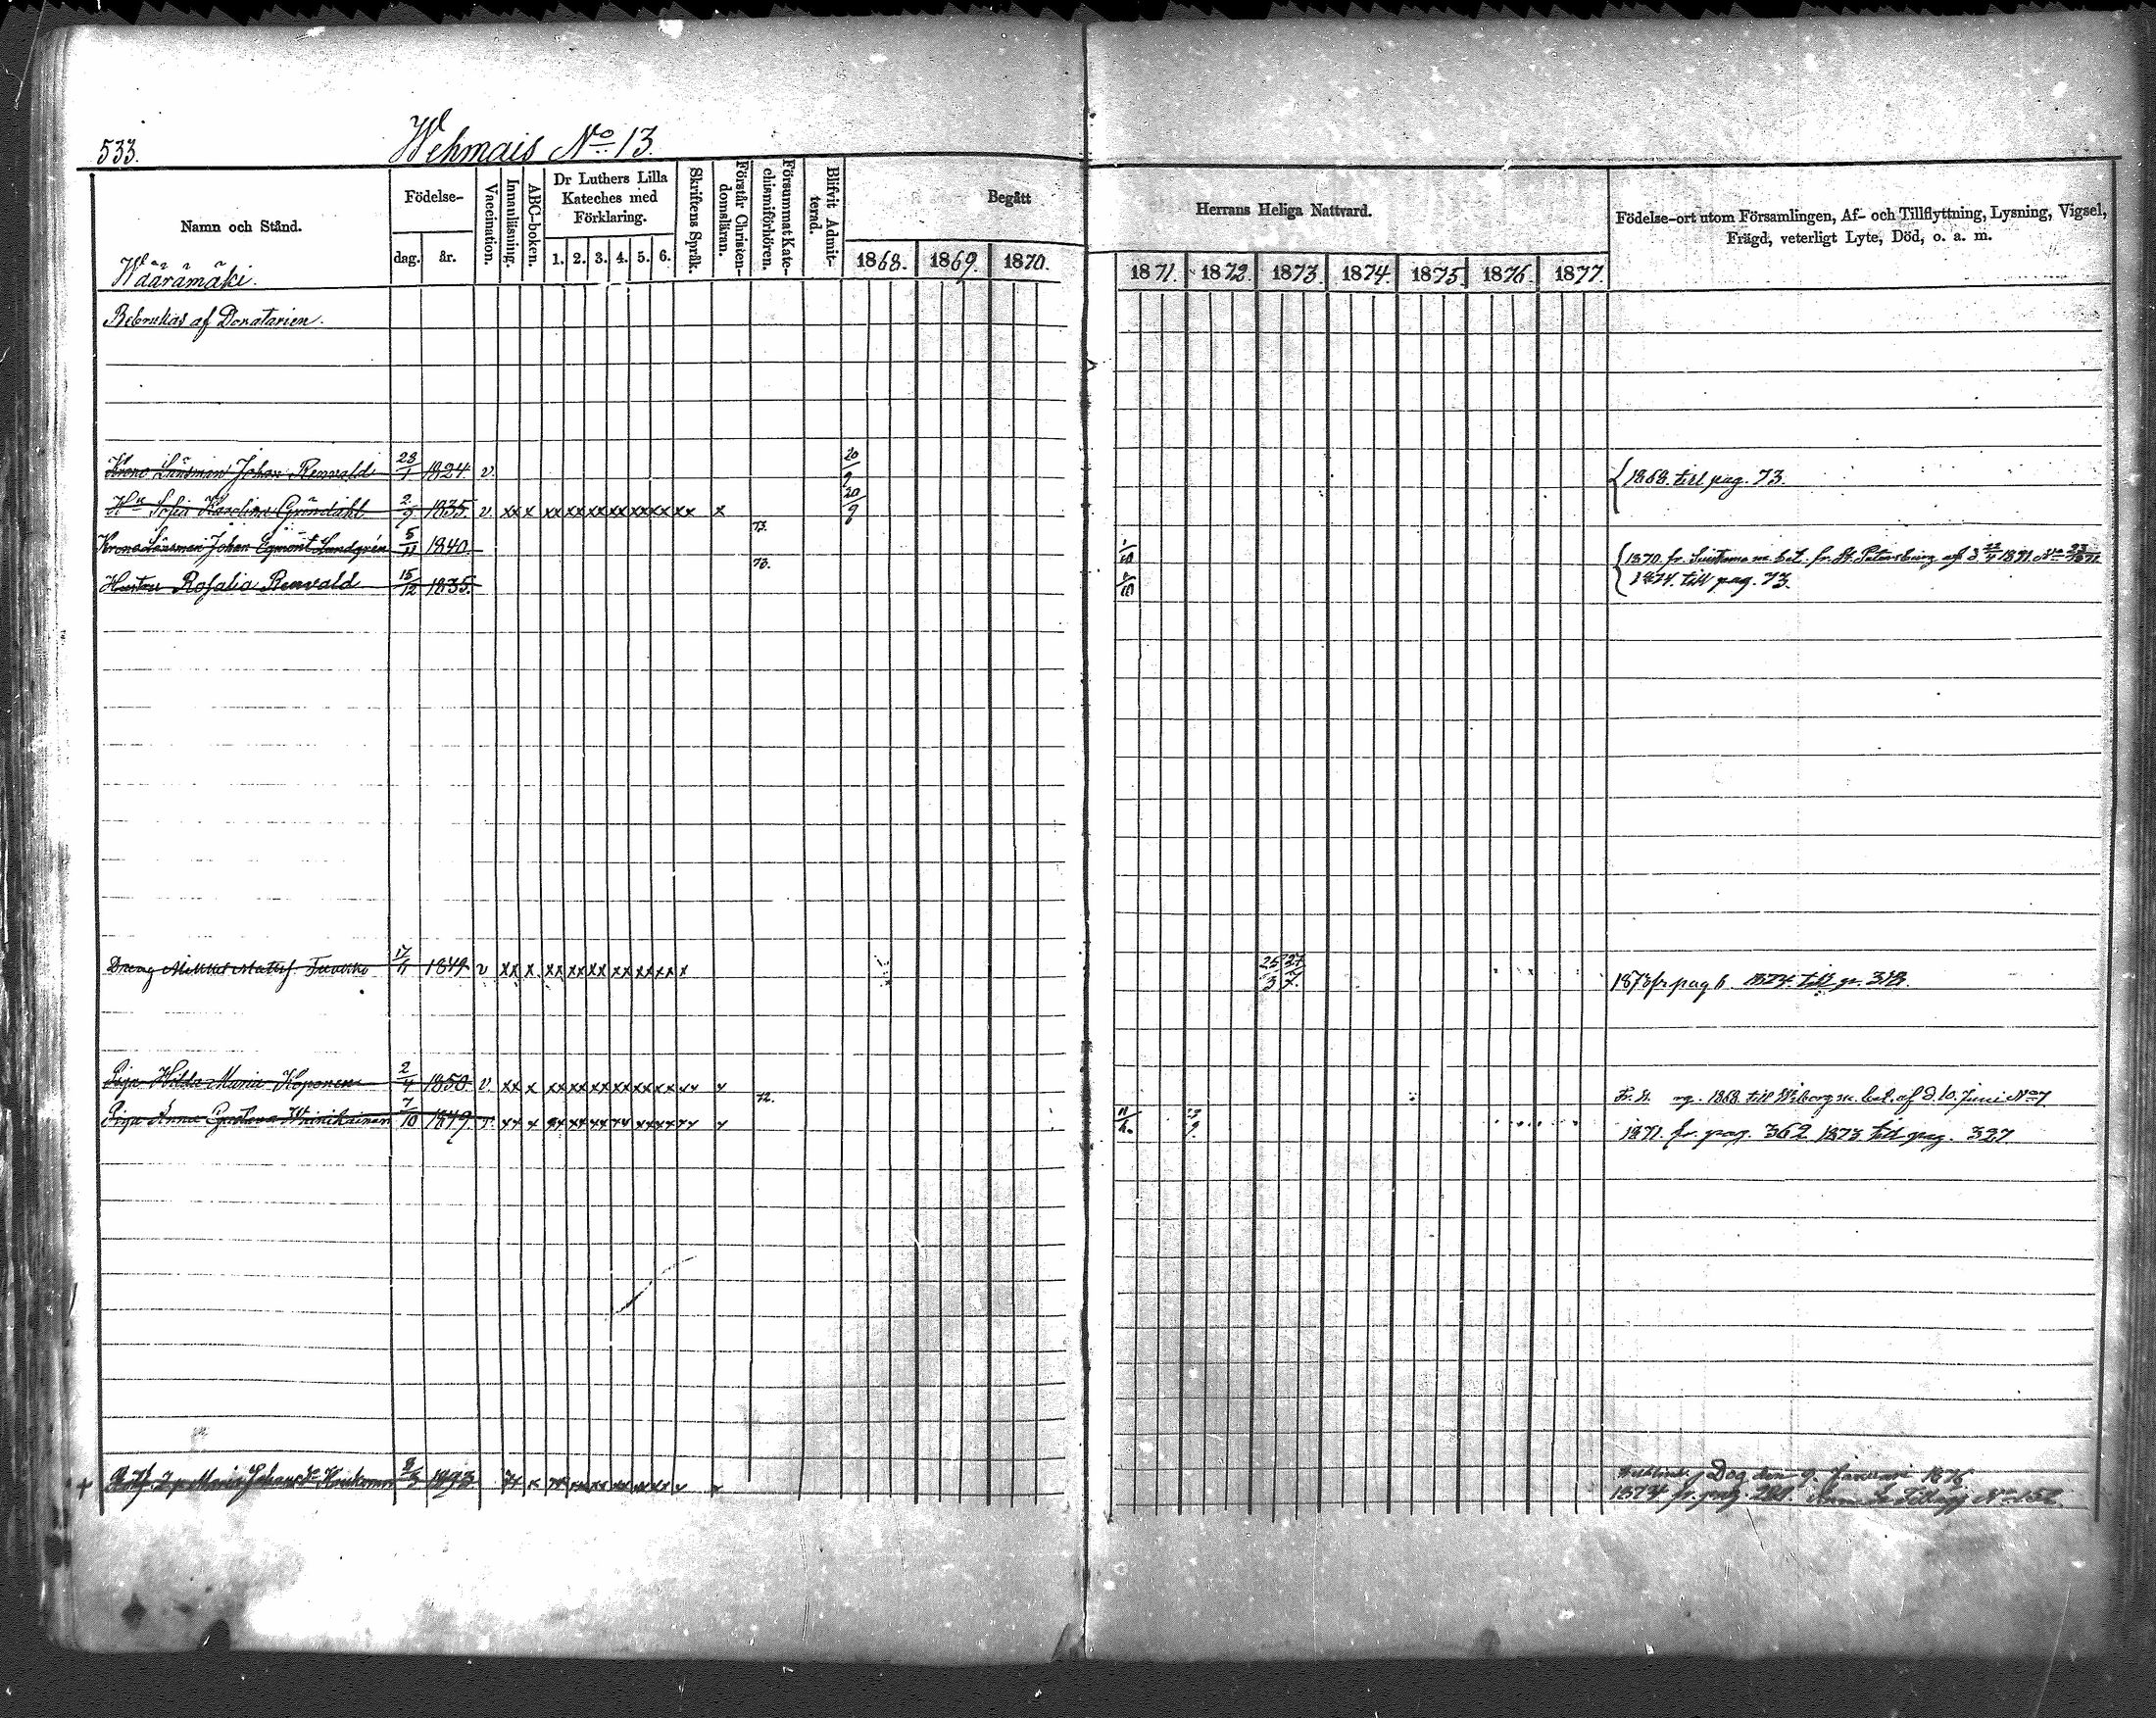 533.
Wehmais No 13.
Namn och Stånd.
Födelse-
dag.
år.
Vaccination.
Innanläsning.
ABC-boken.
Dr Luthers Lilla
Kateches med
Förklaring.
1. 2. 3. 4. 5. 6.
Skriftens Språk.
Förstår Christen-
domsläran.
Försummat Kate-
chismiförhören.
Blifvit Admit-
terad.
Begått
1868. 1869. 1870.
Herrans Heliga Nattvard.
1871. 1872. 1873. 1874. 1875. 1876. 1877.
Födelse-ort utom Församlingen, Af- och Tillflyttning, Lysning, Vigsel,
Frägd, veterligt Lyte, Död, o. a. m.
Wäärämäki.
Bebrukas af Donatarien.
Krono Länsman Johan Renvald 23/1 1824. v. 20/9 1868. till pag. 73.
Hu Sofia Karolina Gröndahl 2/9 1835. v. xx x xx xx xx xx xx xx xx x 20/9
Krono Länsman Johan Egmont Lundgrén 5/11 1840 73. 1870. fr. Suistamo m. bet. fr. St. Petersburg af d 22/4 1871 No
Hustru Rosalia Renvald 15/12 1835. 73. 1874. till pag. 73.
Dreng Mikkel Mattss. 17/11 1849 v xx x. xx xx xx xx xx xx x 25/3 27/7. 1873 fr pag 6 1874. till p. 318.
Piga Hilda Maria Koponen 2/4 1850. v. xx x xx xx xx xx xx xx xx x 1868 till Wiborg m. bet. af d. 10. Juni No 7
Piga Anna Gustava Winikainen 7/10 1849 v. xx x xx xx xx xx xx xx xx x 72. 11/6. 1871. fr. pag. 362 1873 till pag. 327
+ Maria Johansdr 1793 Dog den 9. Januari 1876
1874 fr. pag. 281. No 152.